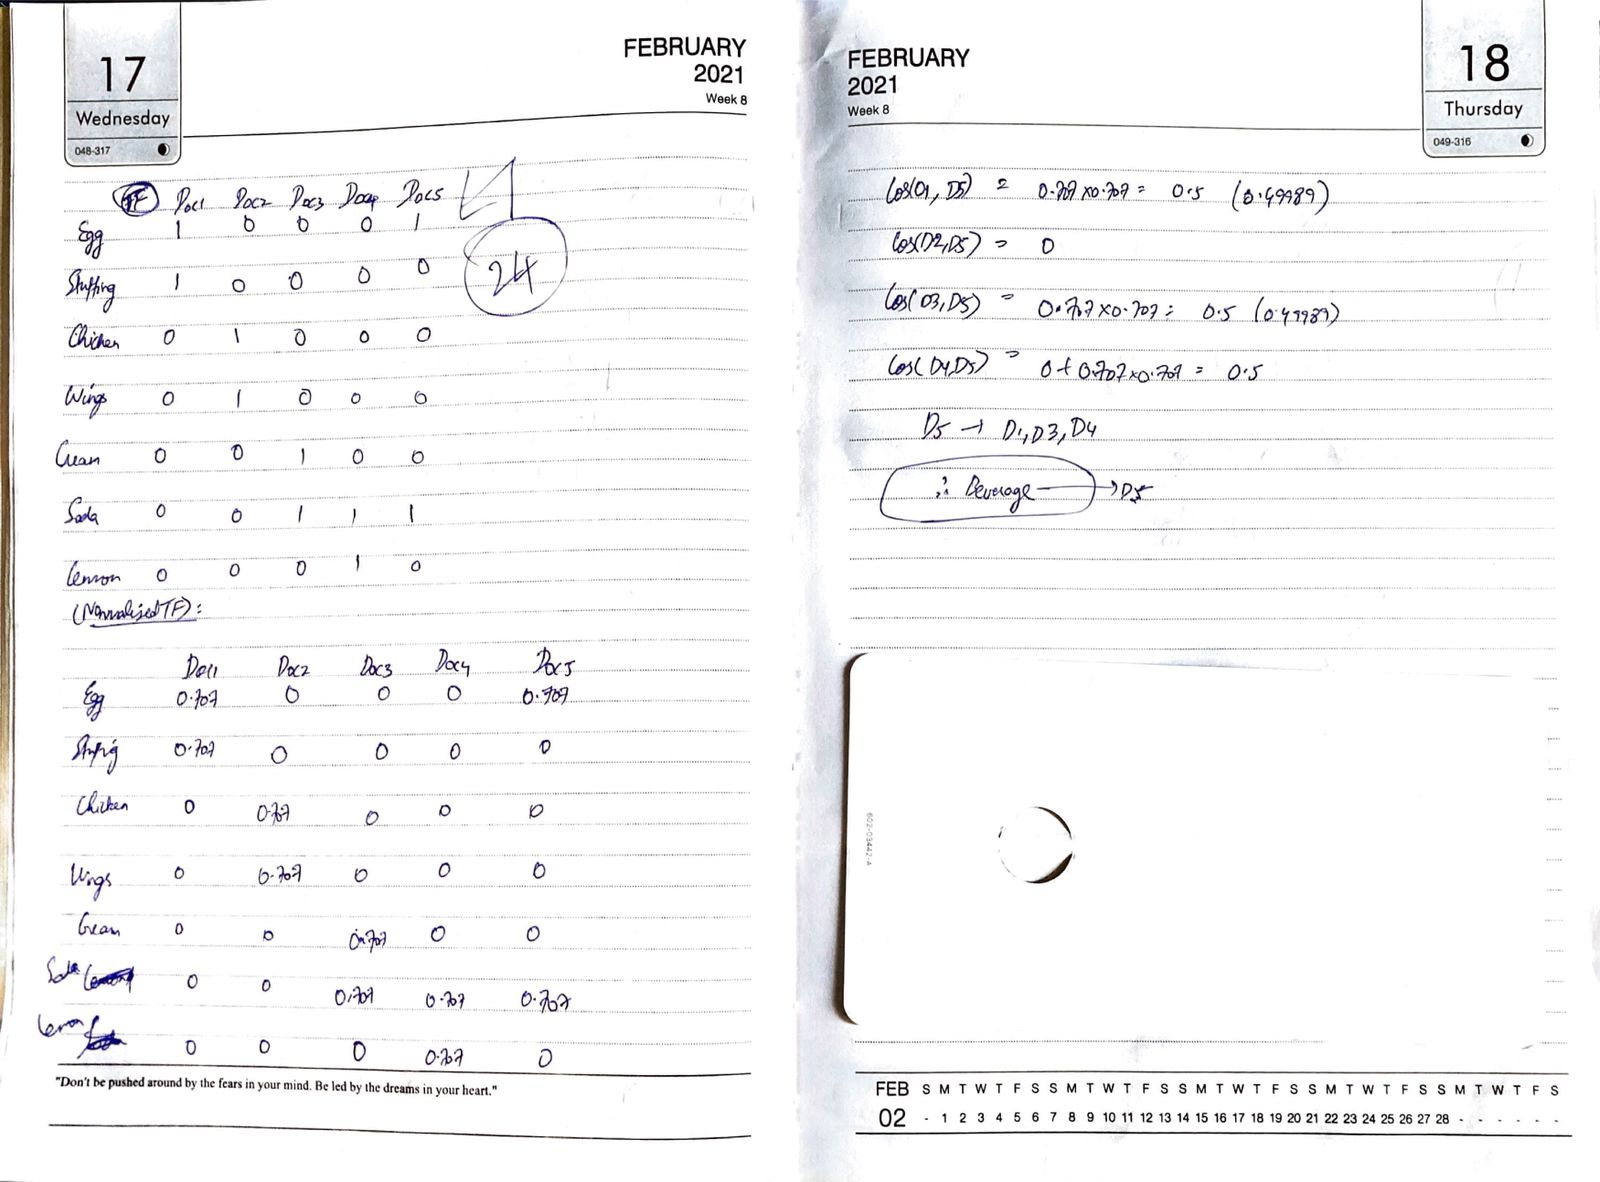 17
Wednesday
048-317
FEBRUARY
2021
Week 8
TF Doc1 Doc2 Doc3 Doc4 Doc5
Egg 1 0 0 0 1
24
Stuffing 1 0 0 0 0
Chicken 0 1 0 0 0
Wings 0 1 0 0 0
Cream 0 0 1 0 0
Soda 0 0 1 1 1
Lemon 0 0 0 1 0
(Normalised TF):
Doc1 Doc2 Doc3 Doc4 Doc5
Egg 0.707 0 0 0 0.707
Stuffing 0.707 0 0 0 0
Chicken 0 0.707 0 0 0
Wings 0 0.707 0 0 0
Cream 0 0 0.707 0 0
Soda 0 0 0.707 0.707 0.707
Lemon 0 0 0 0.707 0
"Don't be pushed around by the fears in your mind. Be led by the dreams in your heart."
FEBRUARY
2021
Week 8
18
Thursday
049-316
Cos(D1, D5) = 0.707 x 0.707 = 0.5 (0.49989)
Cos(D2,D5) = 0
Cos(D3,D5) = 0.707 x 0.707 = 0.5 (0.49989)
Cos(D4,D5) = 0 + 0.707 x 0.707 = 0.5
D5 → D1, D3, D4
∴ Beverage → D5
602-03442-A
FEB S M T W T F S S M T W T F S S M T W T F S S M T W T F S S M T W T F S
02 - 1 2 3 4 5 6 7 8 9 10 11 12 13 14 15 16 17 18 19 20 21 22 23 24 25 26 27 28 - - - - - -